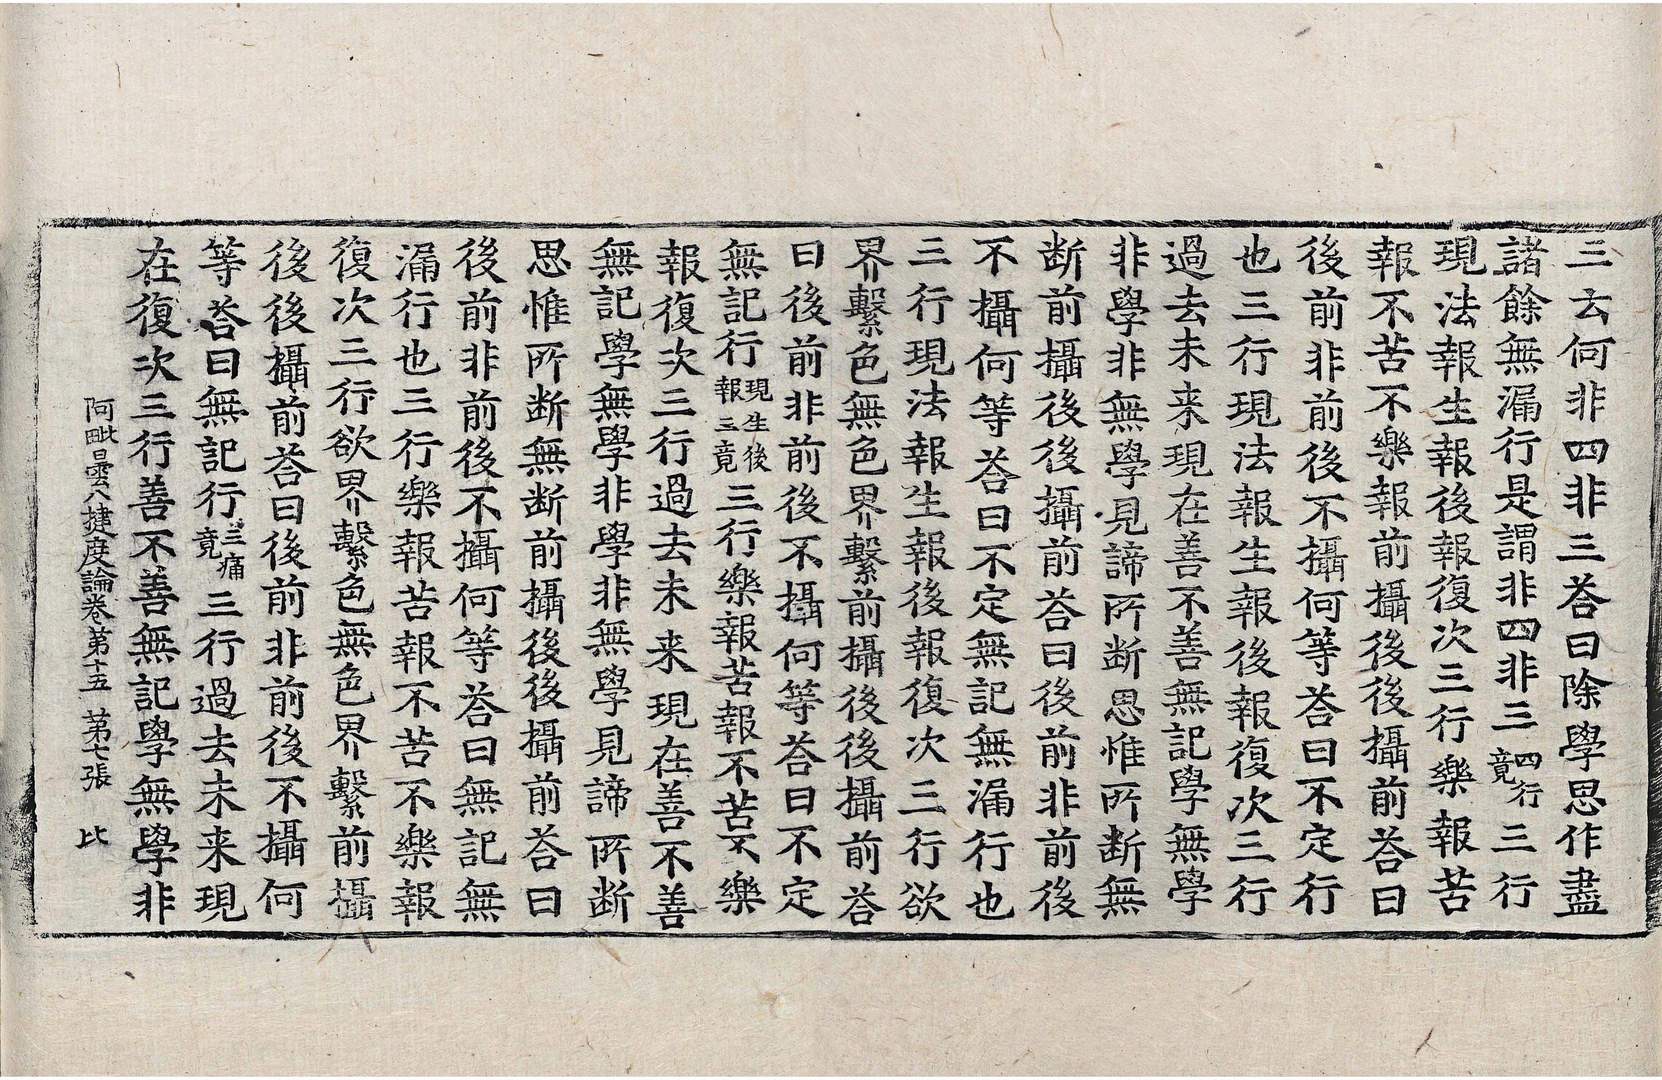 三云何非四非三荅曰除學思作盡
諸餘無漏行是謂非四非三四行竟三行
現法報生報後報復次三行樂報苦
報不苦不樂報前攝後後攝前荅曰
後前非前後不攝何等荅曰不定行
也三行現法報生報後報復次三行
過去未来現在善不善無記學無學
非學非無學見諦所斷思惟所斷無
断前攝後後攝前荅曰後前非前後
不攝何等荅曰不定無記無漏行也
三行現法報生報後報復次三行欲
界繫色無色界繫前攝後後攝前荅
曰後前非前後不攝何等荅曰不定
無記行現生後報三竟三行樂報苦報不苦不樂
報復次三行過去未来現在善不善
無記學無學非學非無學見諦所断
思惟所断無断前攝後後攝前荅曰
後前非前後不攝何等荅曰無記無
漏行也三行樂報苦報不苦不樂報
復次三行欲界繫色無色界繫前攝
後後攝前荅曰後前非前後不攝何
等荅曰無記行三痛竟三行過去未来現
在復次三行善不善無記學無學非
阿毗曇八揵度論卷第十五 第七張 比